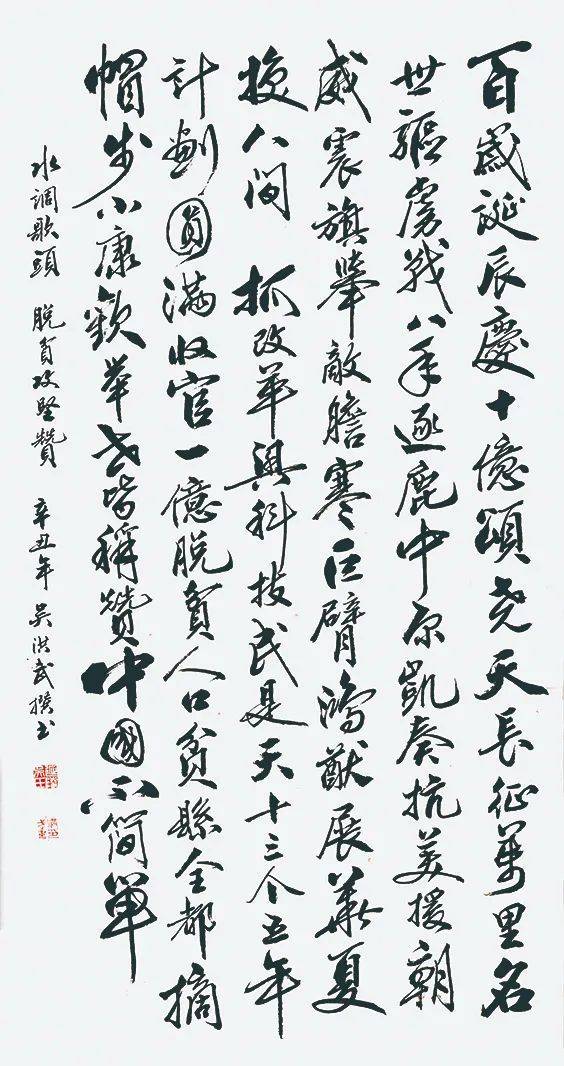 百歲誕辰慶十億頌尧天長征萬里名
世驅虜戰八年逐鹿中原凱奏抗美援朝
威震旗舉敵膽寒巨臂鴻猷展華夏
換人間 抓改革興科技民是天十三个五年
計劃圓滿收官一億脫貧人口貧縣全都摘
帽步小康歡舉世皆稱贊中國不簡單
水調歌頭 脫貧攻堅贊 辛丑年吴洪武撰书